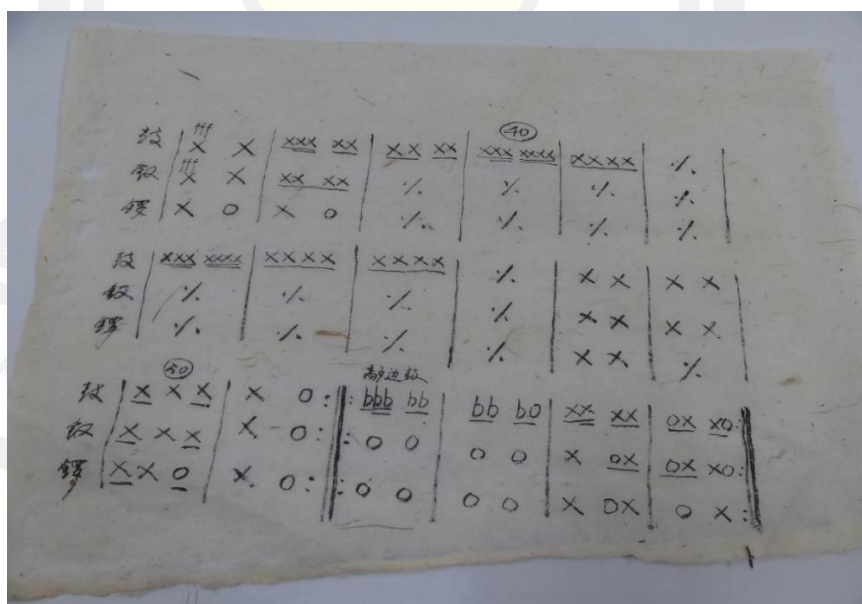 ㊵
鼓 | fff X X | XXX XX | XX XX | XXX XXXX | XXXX | ·/. |
钗 | fff X X | XX XX | ·/. | ·/. | ·/. | ·/. |
锣 | X O | X O | ·/. | ·/. | ·/. | ·/. |
鼓 | XXX XXXX | XXXX | XXXX | ·/. | X X | X X |
钗 | ·/. | ·/. | ·/. | ·/. | X X | X X |
锣 | ·/. | ·/. | ·/. | ·/. | X X | ·/. |
㊿ 敲边鼓
鼓 | X X X | X O :||: bbb bb | bb bO | XX XX | OX XO :||
钗 | X X X | X O :||: O O | O O | X OX | OX XO :||
锣 | X X O | X. O :||: O O | O O | X OX | O X :||